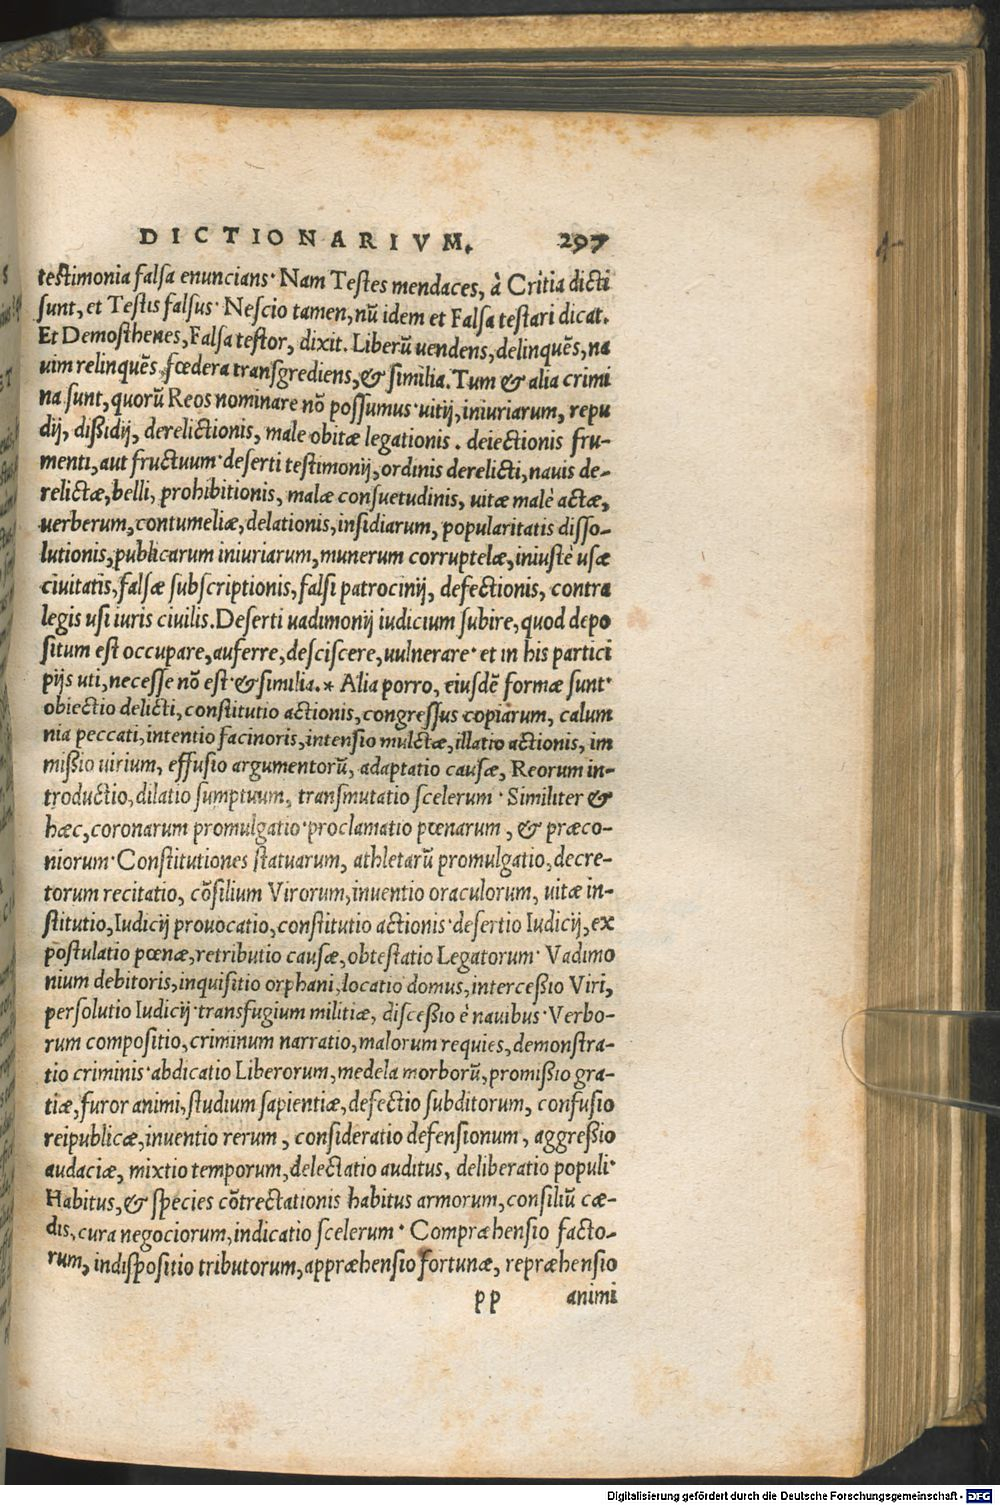 DICTIONARIVM. 297
testimonia falsa enuncians· Nam Testes mendaces, à Critia dicti
sunt, et Testis falsus· Nescio tamen, nũ idem et Falsa testari dicat.
Et Demosthenes, Falsa testor, dixit. Liberũ uendens, delinquẽs, na
uim relinquẽs, fœdera transgrediens, & similia. Tum & alia crimi
na sunt, quorũ Reos nominare nõ possumus· uitij, iniuriarum, repu
dij, dißidij, derelictionis, male obitæ legationis. deiectionis fru-
menti, aut fructuum· deserti testimonij, ordinis derelicti, nauis de-
relictæ, belli, prohibitionis, malæ consuetudinis, uitæ malè actæ,
uerberum, contumeliæ, delationis, insidiarum, popularitatis disso-
lutionis, publicarum iniuriarum, munerum corruptelæ, iniustè usæ
ciuitatis, falsæ subscriptionis, falsi patrocinij, defectionis, contra
legis usi iuris ciuilis. Deserti uadimonij iudicium subire, quod depo
situm est occupare, auferre, desciscere, uulnerare· et in his partici
pijs uti, necesse nõ est· & similia.* Alia porro, eiusdẽ formæ sunt·
obiectio delicti, constitutio actionis, congressus copiarum, calum
nia peccati, intentio facinoris, intensio mulctæ, illatio actionis, im
mißio uirium, effusio argumentorũ, adaptatio causæ, Reorum in-
troductio, dilatio sumptuum, transmutatio scelerum· Similiter &
hæc, coronarum promulgatio· proclamatio pœnarum, & præco-
niorum· Constitutiones statuarum, athletarũ promulgatio, decre-
torum recitatio, cõsilium Virorum, inuentio oraculorum, uitæ in-
stitutio, Iudicij prouocatio, constitutio actionis· desertio Iudicij, ex
postulatio pœnæ, retributio causæ, obtestatio Legatorum· Vadimo
nium debitoris, inquisitio orphani, locatio domus, interceßio Viri,
persolutio Iudicij· transfugium militiæ, disceßio è nauibus· Verbo-
rum compositio, criminum narratio, malorum requies, demonstra-
tio criminis· abdicatio Liberorum, medela morborũ, promißio gra-
tiæ, furor animi, studium sapientiæ, defectio subditorum, confusio
reipublicæ, inuentio rerum, consideratio defensionum, aggreßio
audaciæ, mixtio temporum, delectatio auditus, deliberatio populi·
Habitus, & species cõtrectationis habitus armorum, consiliũ cæ-
dis, cura negociorum, indicatio scelerum· Compræhensio facto-
rum, indispositio tributorum, appræhensio fortunæ, repræhensio
pp animi
Digitalisierung gefördert durch die Deutsche Forschungsgemeinschaft - DFG